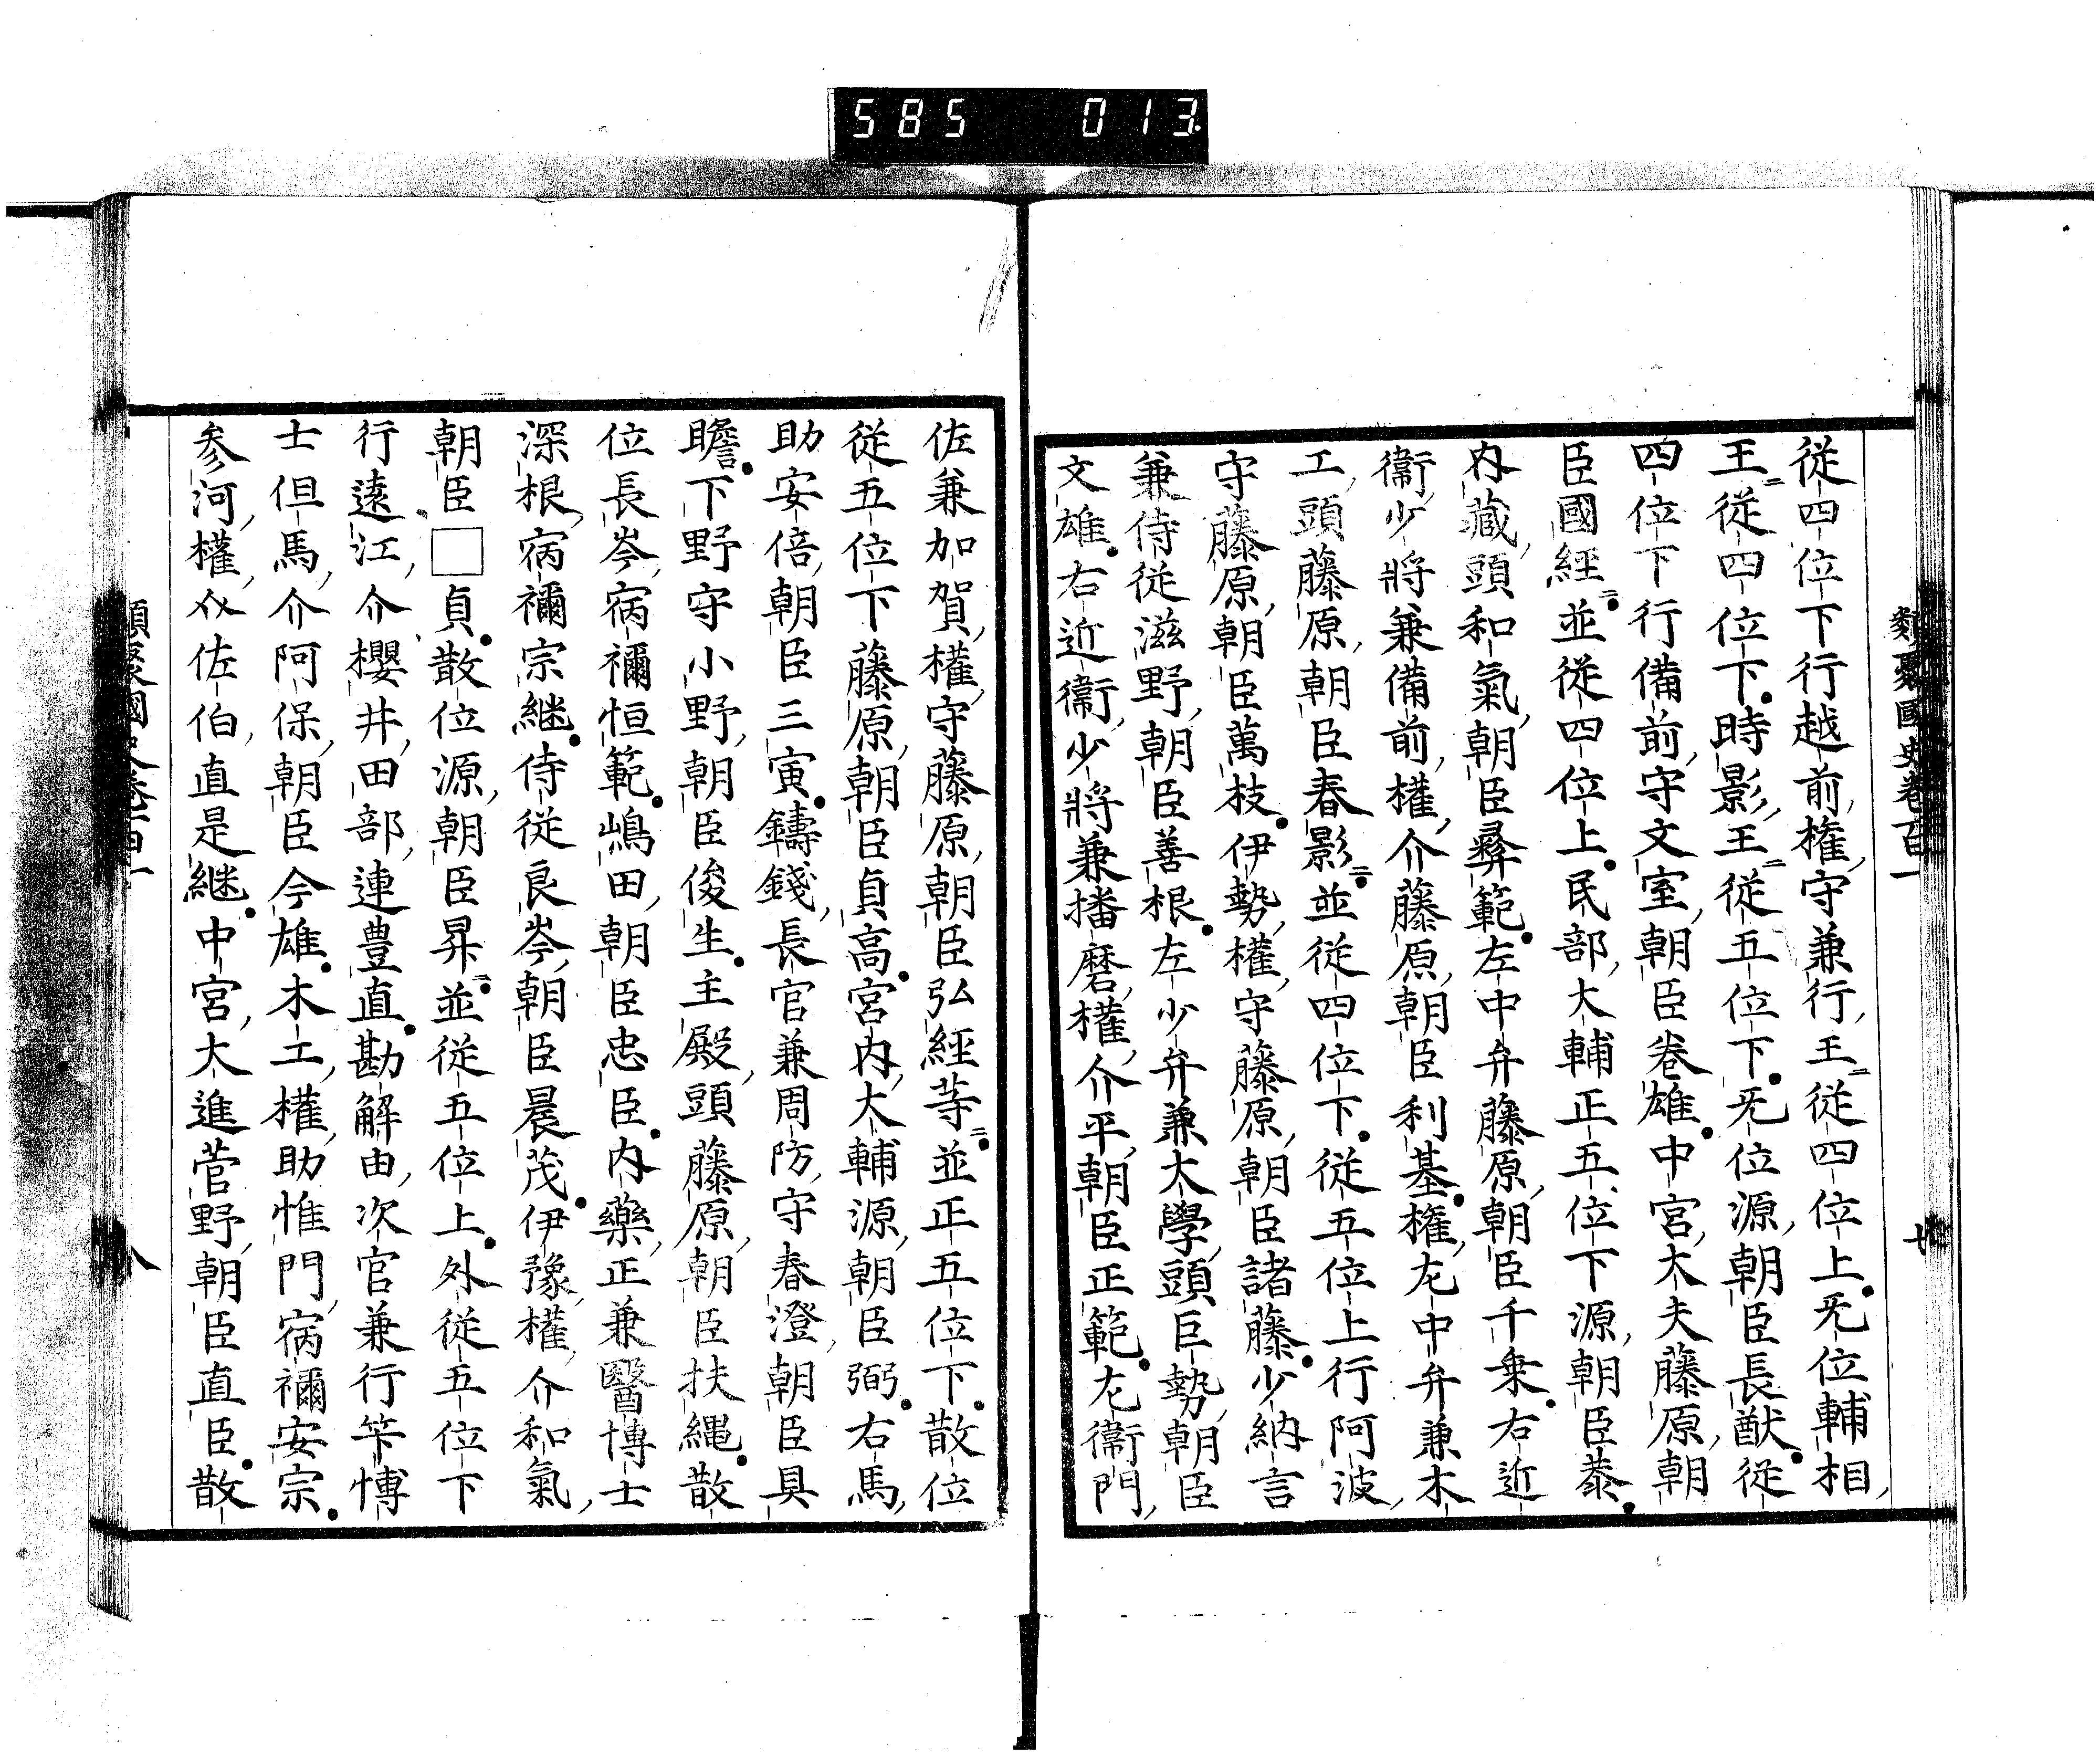 585 013
類聚國史卷百一
從四位下行越前權守兼行王從四位上无位輔相
王從四位下時影王從五位下无位源朝臣長猷從
四位下行備前守文室朝臣卷雄中宮大夫藤原朝
臣國經並從四位上民部大輔正五位下源朝臣
內藏頭和氣朝臣彛範左中弁藤原朝臣千乗右近
衞少將兼備前權介藤原朝臣利基權左中弁兼木
工頭藤原朝臣春影並從四位下從五位上行阿波
守藤原朝臣萬枝伊勢權守藤原朝臣諸藤少納言
兼侍從滋野朝臣善根左少弁兼大學頭巨勢朝臣
文雄右近衞少將兼播磨權介平朝臣正範左衞門
佐兼加賀權守藤原朝臣弘經等並正五位下散位
從五位下藤原朝臣貞高宮內大輔源朝臣弼右馬
助安倍朝臣三寅鑄錢長官兼周防守春澄朝臣具
瞻下野守小野朝臣俊生主殿頭藤原朝臣扶繩散
位長岑宿禰恒範嶋田朝臣忠臣內藥正兼醫博士
深根宿禰宗継侍從良岑朝臣晨茂伊豫權介和氣
朝臣□貞散位源朝臣昇並從五位上外從五位下
行遠江介櫻井田部連豊直勘解由次官兼行笇博
士但馬介阿保朝臣今雄木工權助惟門宿禰安宗
參河權介佐伯直是継中宮大進菅野朝臣直臣散
類聚國史卷百一
八